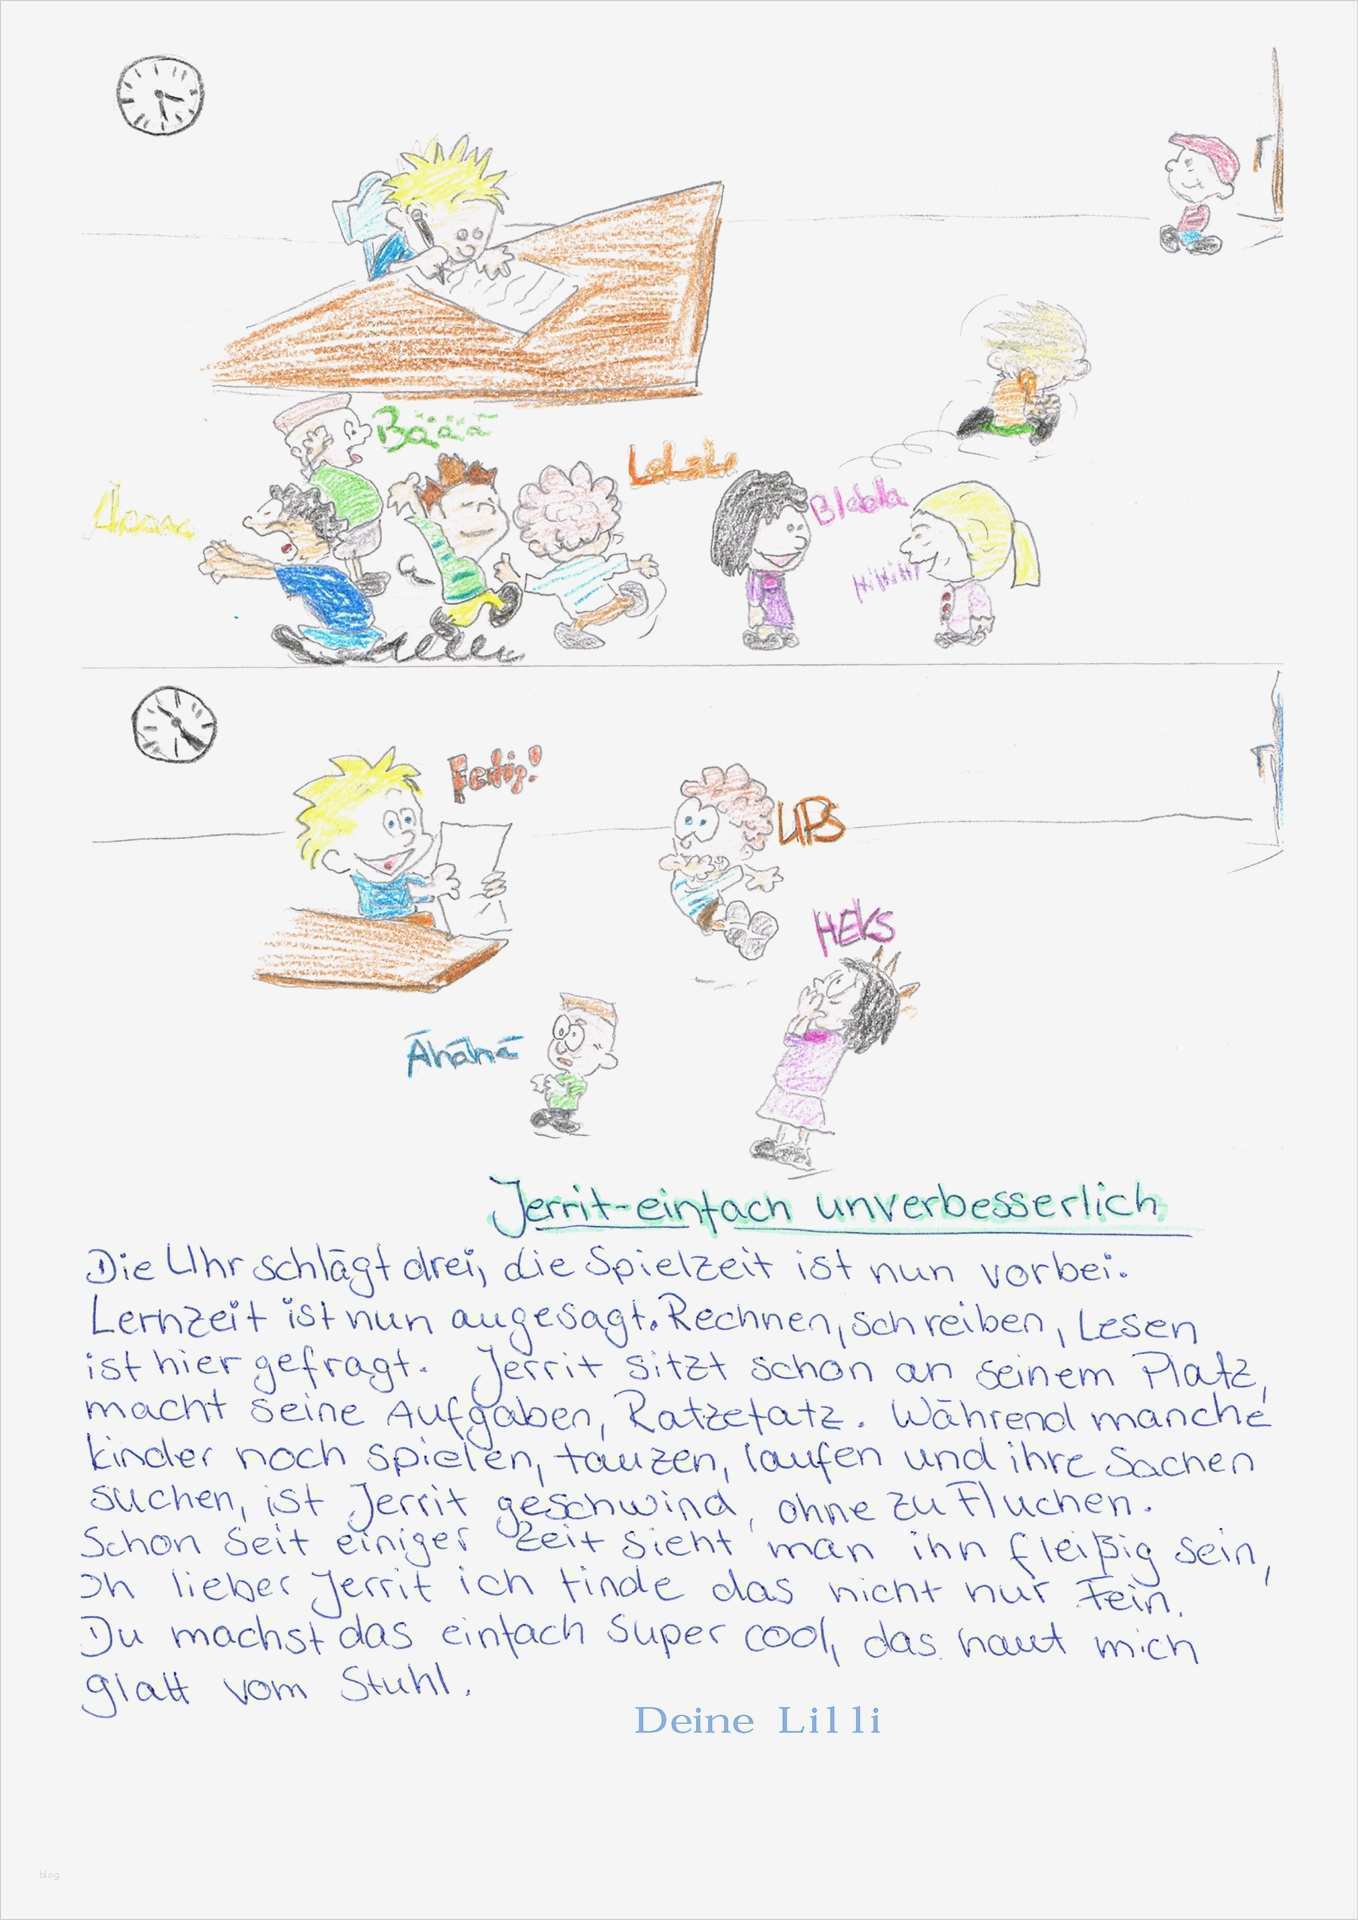 Bääää
Lalala
Blabla
HiHiHi
Fertig!
UPS
HEKS
Ähähä
Jerrit-einfach unverbesserlich
Die Uhr schlägt drei, die Spielzeit ist nun vorbei.
Lernzeit ist nun augesagt. Rechnen, schreiben, Lesen
ist hier gefragt. Jerrit sitzt schon an seinem Platz,
macht seine Aufgaben, Ratzefatz. Während manche
kinder noch spielen, tauzen, laufen und ihre Sachen
suchen, ist Jerrit geschwind, ohne zu Fluchen.
Schon seit einiger Zeit sieht man ihn fleißig sein,
Oh lieber Jerrit ich finde das nicht nur Fein.
Du machst das einfach super cool, das haut mich
glatt vom Stuhl.
Deine Lilli
blog